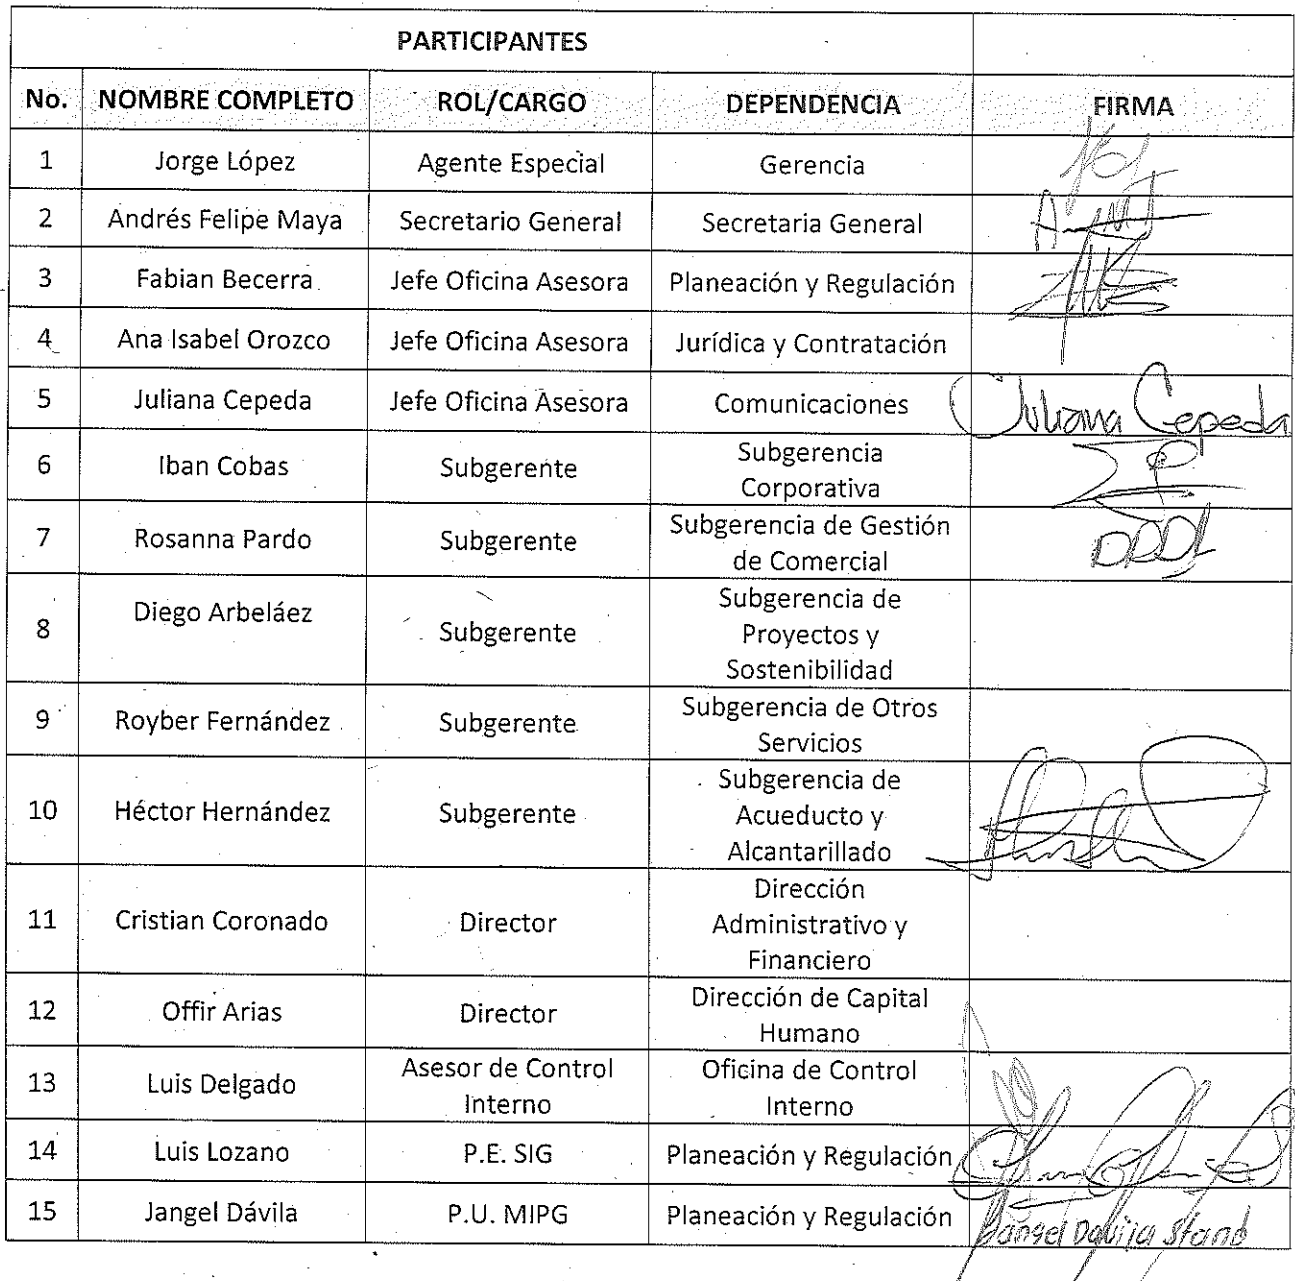 PARTICIPANTES
No. NOMBRE COMPLETO ROL/CARGO DEPENDENCIA FIRMA
1 Jorge López Agente Especial Gerencia
2 Andrés Felipe Maya Secretario General Secretaria General
3 Fabian Becerra Jefe Oficina Asesora Planeación y Regulación
4 Ana Isabel Orozco Jefe Oficina Asesora Jurídica y Contratación
5 Juliana Cepeda Jefe Oficina Asesora Comunicaciones Juliana Cepeda
6 Iban Cobas Subgerente Subgerencia
Corporativa
7 Rosanna Pardo Subgerente Subgerencia de Gestión
de Comercial
8 Diego Arbeláez Subgerente Subgerencia de
Proyectos y
Sostenibilidad
9 Royber Fernández Subgerente Subgerencia de Otros
Servicios
10 Héctor Hernández Subgerente Subgerencia de
Acueducto y
Alcantarillado
11 Cristian Coronado Director Dirección
Administrativo y
Financiero
12 Offir Arias Director Dirección de Capital
Humano
13 Luis Delgado Asesor de Control Oficina de Control
Interno Interno
14 Luis Lozano P.E. SIG Planeación y Regulación
15 Jangel Dávila P.U. MIPG Planeación y Regulación Jangel Davila Stand